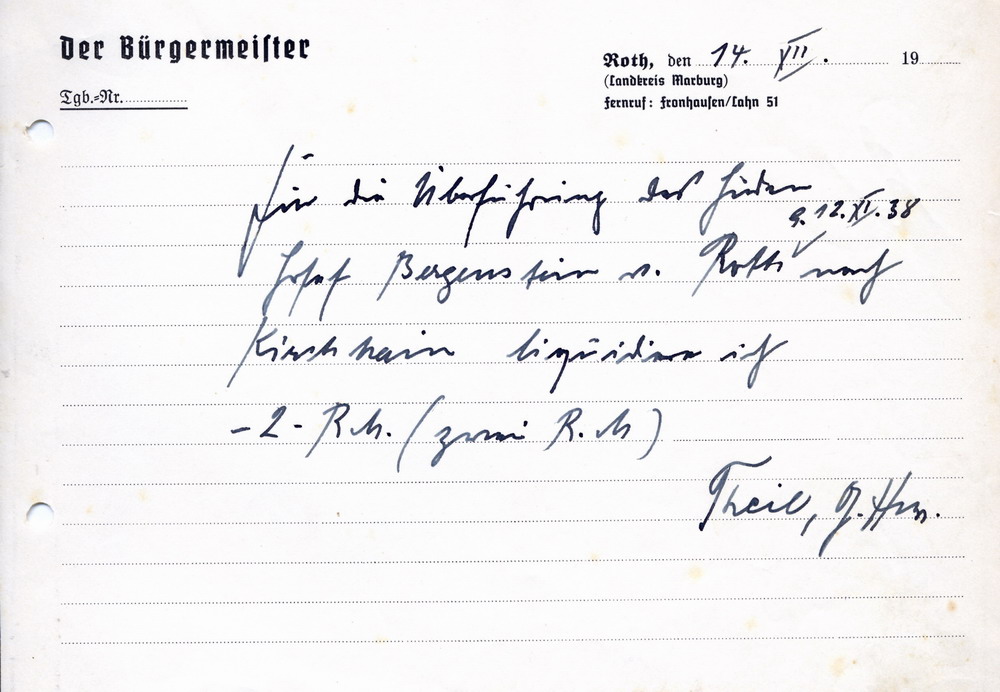 Der Bürgermeister
Tgb.-Nr.
Roth, den 14. XII. 19
(Landkreis Marburg)
Fernruf: Fronhausen/Lahn 51
Für die Überführung des Juden
9.12.XI.38
Josef Bergenstein v. Roth nach
Kirchhain liquidiere ich
- 2 - R.M. (zwei R.M)
Theil,